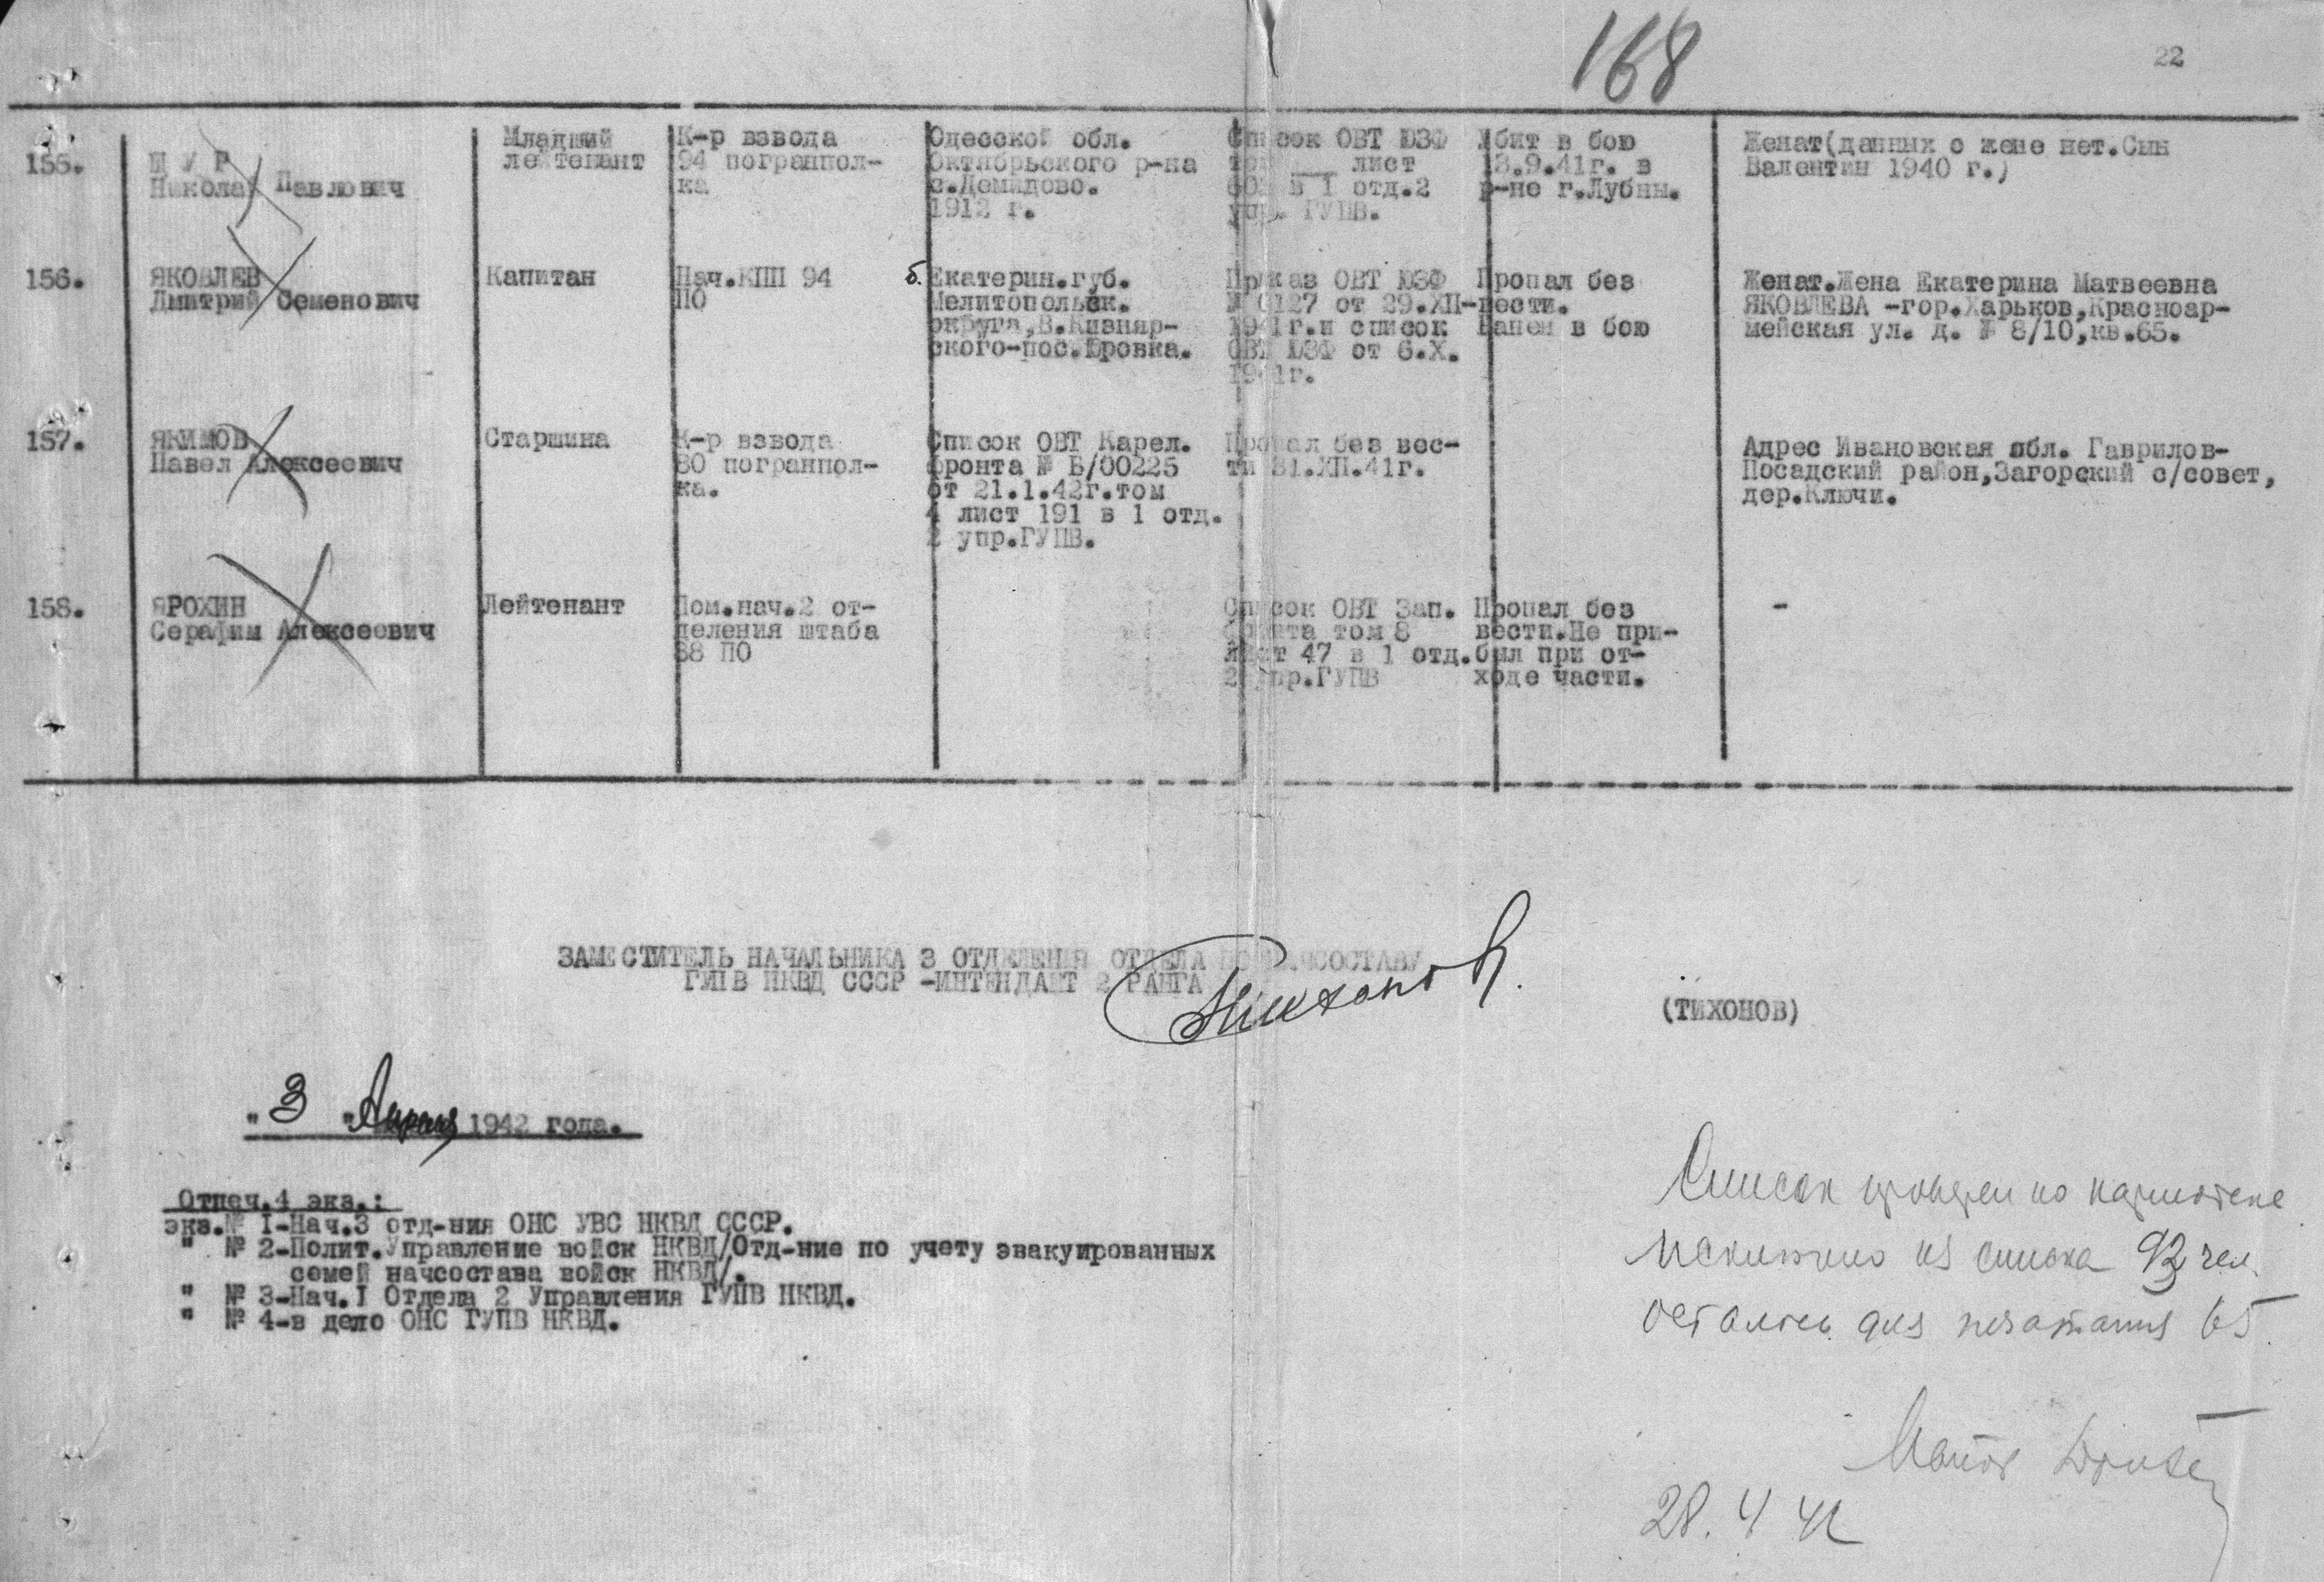 168
22
155.
Ш У Р
Николай Павлович
Младший
лейтенант
К-р взвода
94 погранпол-
ка
Одесской обл.
Октябрьского р-на
с.Демидово.
1912 г.
Список ОВТ ЮЗФ
том __ лист
в 1 отд.2
упр. ГУПВ.
Убит в бою
13.9.41г. в
р-не г.Лубны.
Женат(данных о жене нет.Сын
Валентин 1940 г.)
156.
ЯКОВЛЕВ
Дмитрий Семенович
Капитан
Нач.КПП 94
ПО
б.Екатерин.губ.
Мелитопольск.
округа,В.Кизияр-
ского-пос.Юровка.
Приказ ОВТ ЮЗФ
№ 0127 от 29.ХП-
1941г.и список
ОВТ ЮЗФ от 6.Х.
1941г.
Пропал без
вести.
Ранен в бою
Женат.Жена Екатерина Матвеевна
ЯКОВЛЕВА -гор.Харьков,Красноар-
мейская ул. д. № 8/10,кв.65.
157.
ЯКИМОВ
Павел Алексеевич
Старшина
К-р взвода
80 погранпол-
ка.
Список ОВТ Карел.
фронта № Б/00225
от 21.1.42г.том
4 лист 191 в 1 отд.
2 упр.ГУПВ.
Пропал без вес-
ти 31.ХП.41г.
Адрес Ивановская обл. Гаврилов-
Посадский район,Загорский с/совет,
дер.Ключи.
158.
ЯРОХИН
Серафим Алексеевич
Лейтенант
Пом.нач.2 от-
деления штаба
88 ПО
Список ОВТ Зап.
фронта том 8
лист 47 в 1 отд.
2 упр.ГУПВ
Пропал без
вести.Не при-
был при от-
ходе части.
-
ЗАМЕСТИТЕЛЬ НАЧАЛЬНИКА 3 ОТДЕЛЕНИЯ ОТДЕЛА ПО НАЧСОСТАВУ
ГУПВ НКВД СССР -ИНТЕНДАНТ 2 РАНГА
Тихонов.
(ТИХОНОВ)
"3 "Апреля 1942 года.
Отпеч.4 экз.:
экз.№ I-Нач.3 отд-ния ОНС УВС НКВД СССР.
" № 2-Полит.Управление войск НКВД/Отд-ние по учету эвакуированных
семей начсостава войск НКВД/.
" № 3-Нач.I Отдела 2 Управления ГУПВ НКВД.
" № 4-в дело ОНС ГУПВ НКВД.
Список проверен по картотеке
исключено из списка 93 чел.
осталось для печатания 65
Майор
28.4 42